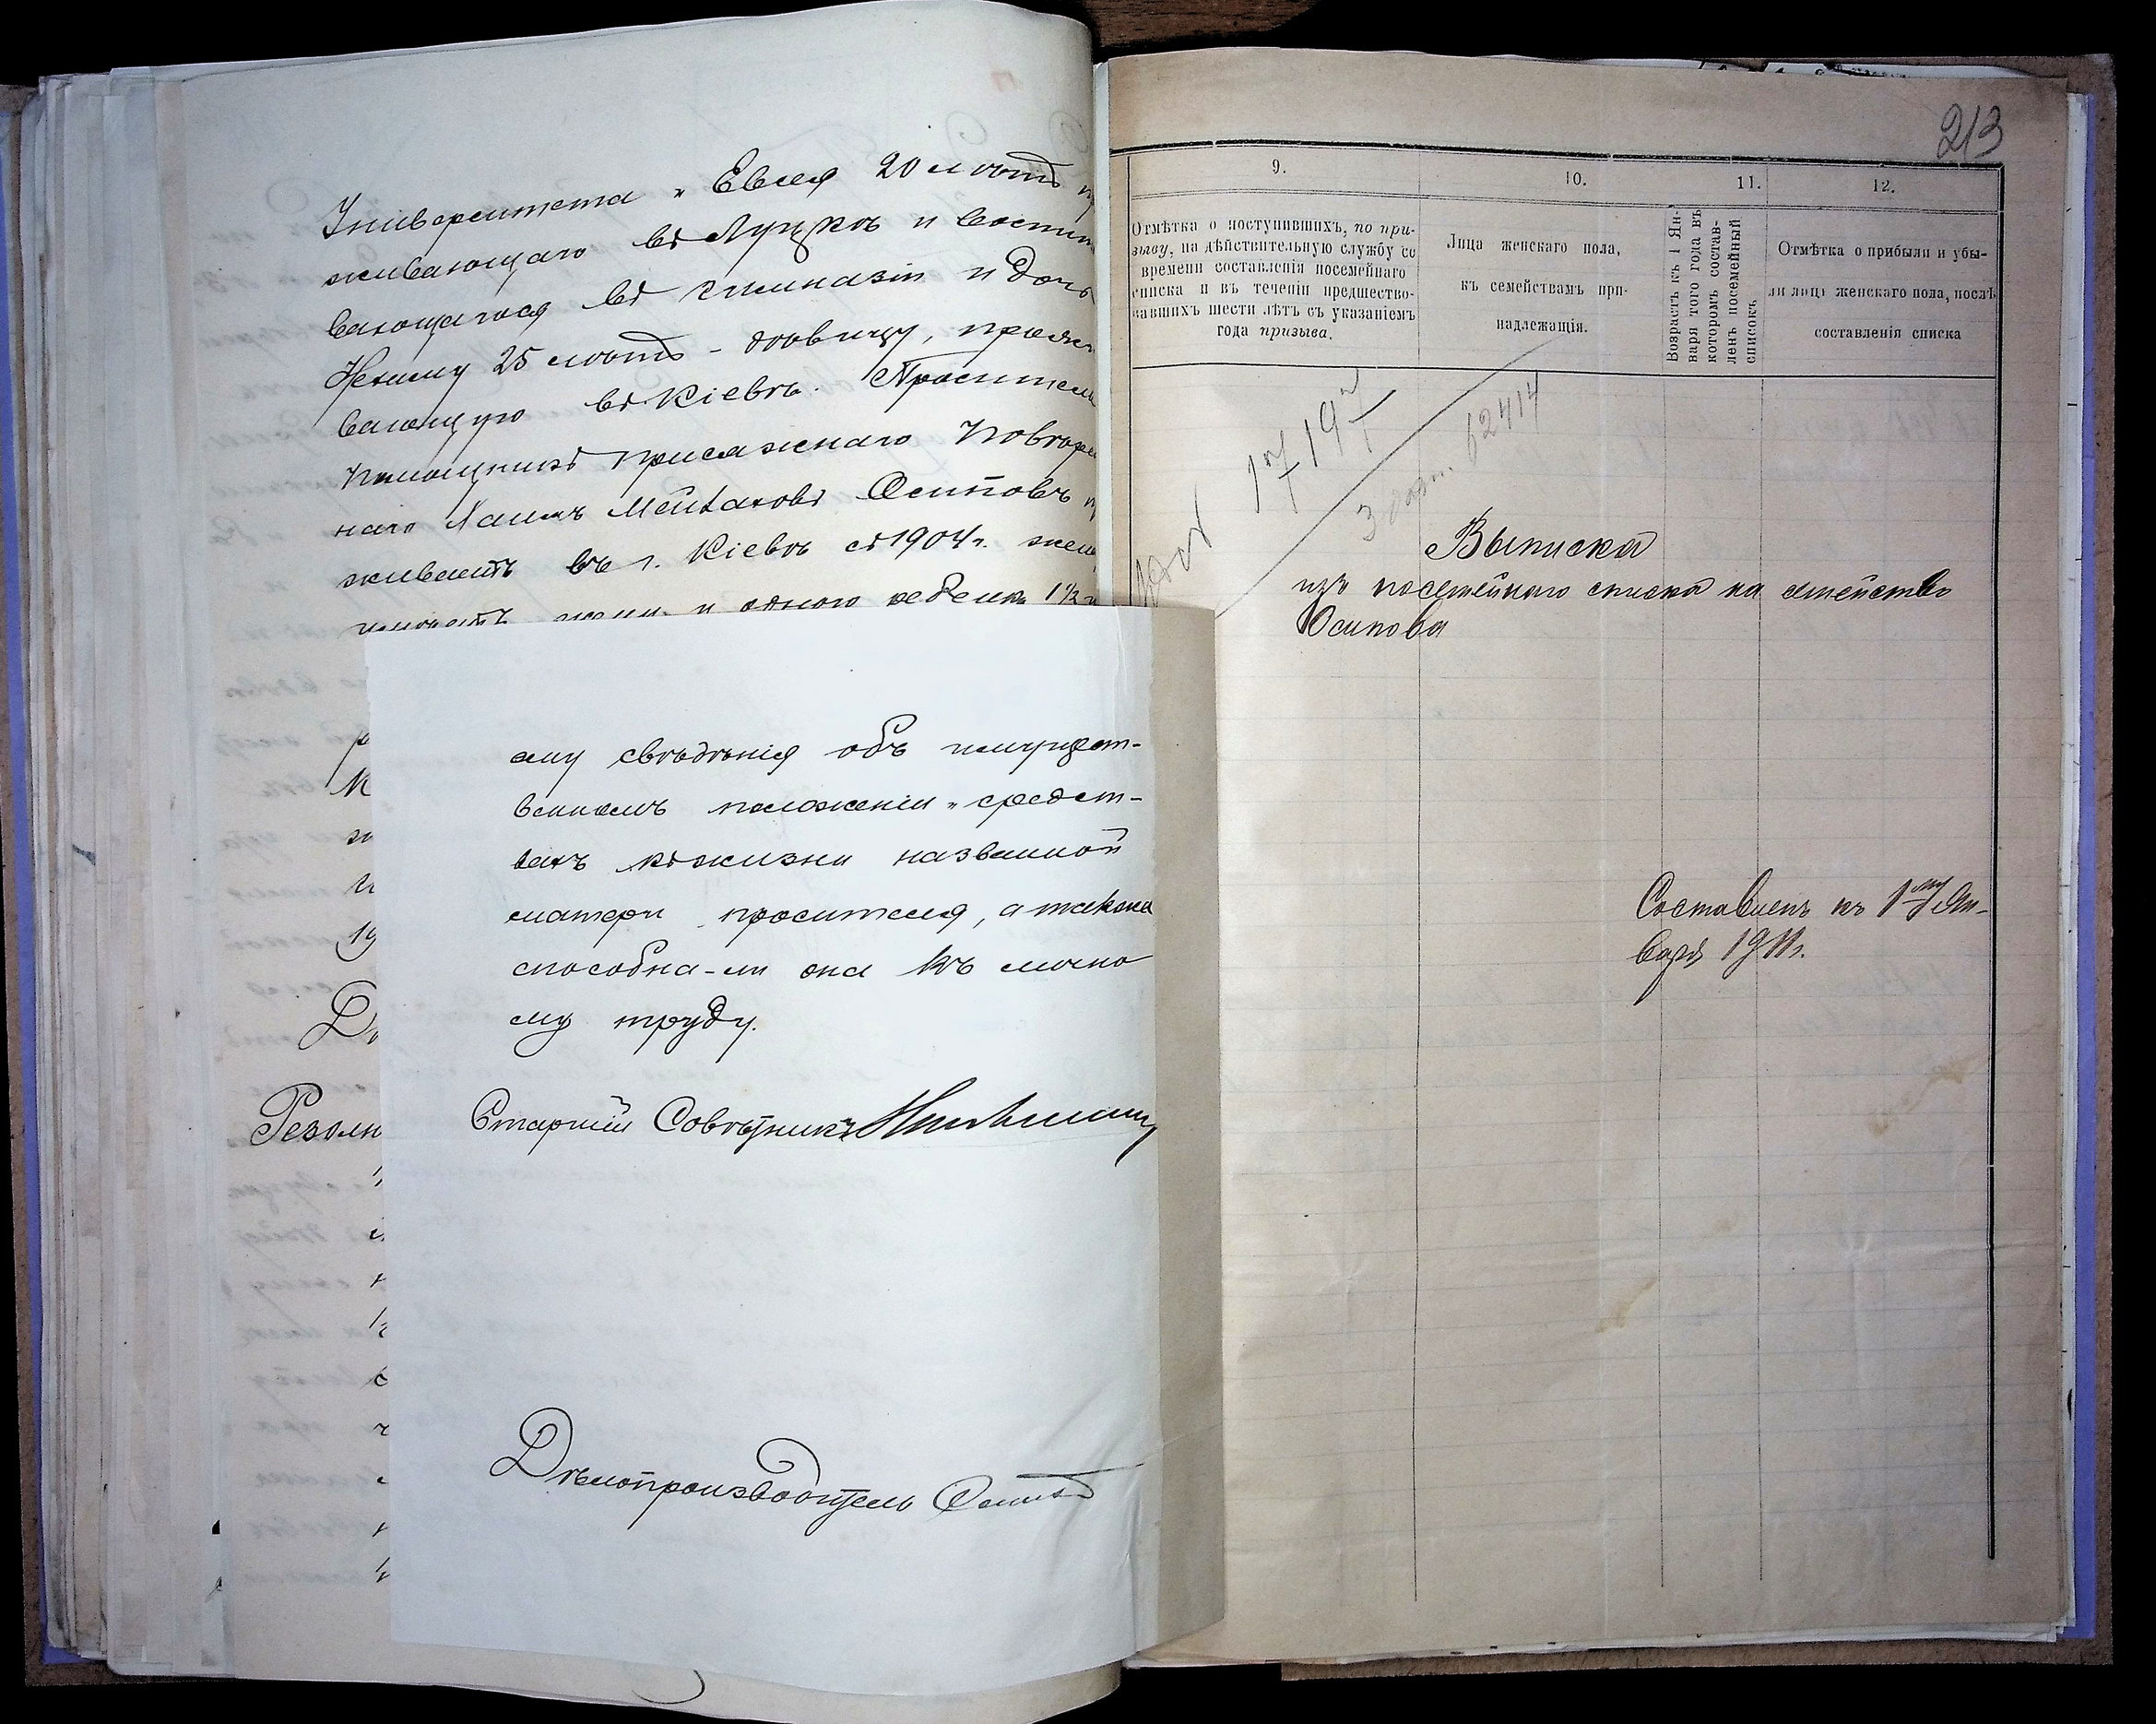 Университета и Евсея 20 лѣтъ
живающаго въ Луцкѣ и воспиты
вающагося въ гимназіи и дочь
25 лѣтъ - дѣвицу, прожи
вающую въ Кіевѣ. Проситель
Помощникъ Присяжнаго Повѣрен
наго Хаимъ Осиповъ
живаетъ въ г. Кіевѣ съ 1904 г.
и одного 1½
Резолю
ему свѣдѣнія объ имущест-
венномъ положеніи и средст-
вахъ къ жизни названной
матери просителя, а также
способна-ли она къ лично
му труду.
Старшій Совѣтникъ
Дѣлопроизводитель
213
9.
10.
11.
12.
Отмѣтка о поступившихъ, по при-
зыву, на дѣйствительную службу со
времени составленія посемейнаго
списка и въ теченіи предшество-
вавшихъ шести лѣтъ съ указаніемъ
года призыва.
Лица женскаго пола,
къ семействамъ при-
надлежащія.
Возрастъ къ 1 Ян-
варя того года въ
которомъ состав-
ленъ посемейный
списокъ.
Отмѣтка о прибыли и убы-
ли лицъ женскаго пола, послѣ
составленія списка
62414
Выписка
изъ посемейнаго списка на семейство
Осипова
Составленъ къ 1му Ян-
варя 1911г.